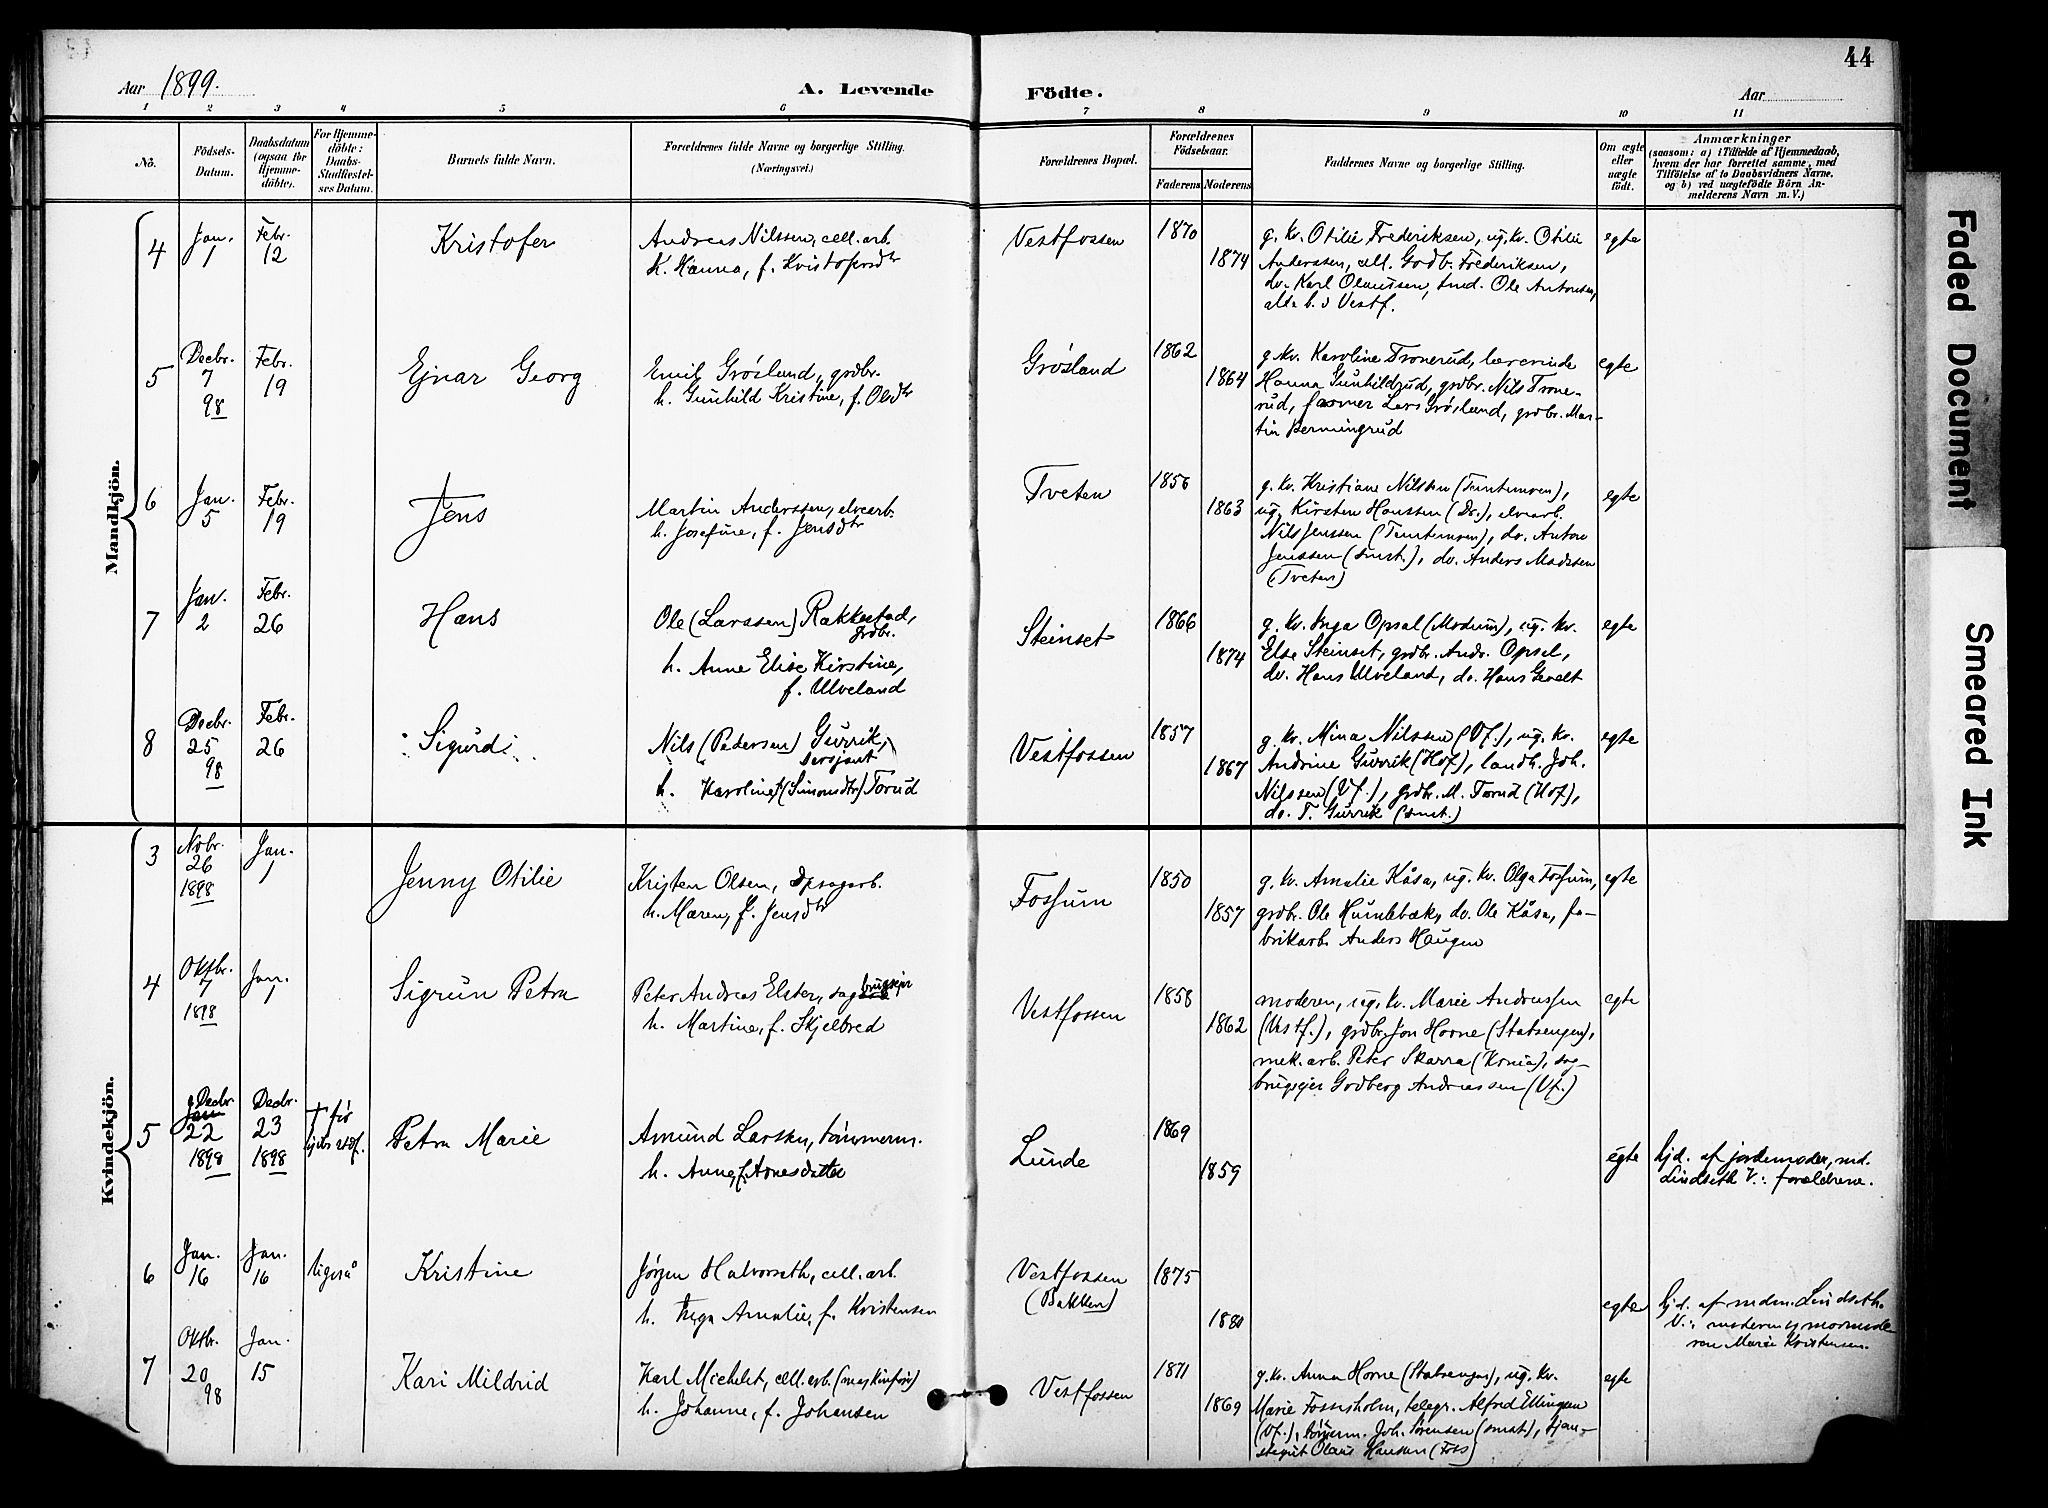 44
Aar 1899.
A. Levende Födte.
Aar
1 2 3 4 5 6 7 8 9 10 11
No.
Födsels-Datum.
Daabsdatum (ogsaa for Hjemmedöbte).
For Hjemmedöbte: Daabs-Stadfæstelses Datum.
Barnets fulde Navn.
Forældrenes fulde Navne og borgerlige Stilling. (Næringsvei.)
Forældrenes Bopæl.
Forældrenes Födselsaar.
Faderens Moderens
Faddernes Navne og borgerlige Stilling.
Om ægte eller uægte födt.
Anmærkninger
(saasom: a) i Tilfælde af Hjemmedaab,
hvem der har forrettet samme, med
Tilföielse af to Daabsvidners Navne,
og b) ved uægtefödte Börn An-
melderens Navn m. V.)
Mandkjön.
4 Jan. 1 Febr. 12 Kristofer
Andreas Nilssen, cell. arb.
h. Hanna, f. Kristofersdtr
Vestfossen 1870 1874
g. kv. Otilie Frederiksen, ug. kv. Otilie
Anderssen, cell. Godb. Frederiksen,
do. Karl Olaussen, smd. Ole Antonsen,
alle b. i Vestf.
egte
5 Decbr. 7 98 Febr. 19 Ejnar Georg
Emil Grøsland, grdbr.
h. Gunhild Kristine, f. Olsdtr
Grøsland 1862 1864
g. kv. Karoline Tronerud, lærerinde
Hanna Gunhildrud, grdbr. Nils Trone-
rud, Lars Grøsland, grdbr. Mar-
tin Bermingrud
egte
6 Jan. 5 Febr. 19 Jens
Martin Anderssen, elvearb.
h. Josefine, f. Jensdtr
Tveten 1856 1863
g. kv. Kristiane Nilsen
ug. Kirsten Hanssen (Dr.), elvearb.
Nils Jenssen do. Anton
Jenssen (smst.), do. Anders Madssen
(Tveten)
egte
7 Jan. 2 Febr. 26 Hans
Ole (Larssen) Rakkestad,
grdbr.
h. Anne Elise Kirstine,
f. Ulveland
Steinset 1866 1874
g. kv. Inga Opsal (Modum), ug. kv.
Else Steinset, grdbr. Andr. Opsal,
do. Hans Ulveland, do. Hans Gevelt
egte
8 Decbr. 25 98 Febr. 26 Sigurd
Nils (Pedersen) Gurrik,
Sersjant
h. Karoline (Simonsdtr) Torud
Vestfossen 1857 1867
g. kv. Mina Nilssen (Vf.), ug. kv.
Andrine Gurrik (Hof), landh. Joh.
Nilssen (Vf.), grdbr. M. Torud (Hof),
do. T. Gurrik (smst.)
egte
Kvindekjön.
3 Novbr. 26 1898 Jan. 1 Jenny Otilie
Kristen Olsen, dpsagarb.
h. Maren, f. Jensdtr
Fossum 1850 1857
g. kv. Amalie Kåsa, ug. kv. Olga Fossum,
grdbr. Ole Humlebæk, do. Ole Kåsa, fa-
brikarb. Anders Haugen
egte
4 Oktbr. 7 1898 Jan. 1 Sigrun Petra
Peter Andreas Elster, sagbrugsejer
h. Martine, f. Skjelbred
Vestfossen 1858 1862
moderen, ug. kv. Marie Andreassen
(Vestf.), grdbr. Jon Horne (Statsengen),
mek. arb. Peter Skarra (Krnia), sag-
brugsejer Godberg Andreassen (Vf.)
egte
5 Decbr. 22 1898 Decbr. 23 1898 † før Petra Marie
Amund Larsen, tømmerm.
h. Anne, f. Arnesdatter
Lunde 1869 1859
egte
hjd. af jordemoder, md.
Lindseth V.: forældrene.
6 Jan. 16 Jan. 16 ligeså Kristine
Jørgen Halvorseth, cell. arb.
h. Inga Amalie, f. Kristensen
Vestfossen (Bakken) 1875 1880
egte
hjd. af mdm. Lindseth.
V.: moderen og mormode
ren Marie Kristensen.
7 Oktbr. 20 98 Jan. 15 Kari Mildrid
Karl Michelet, cell. arb. (maskinfør)
h. Johanne, f. Johansen
Vestfossen 1871 1869
g. kv. Anna Horne (Statsengen), ug. kv.
Marie Fossesholm, telegr. Alfred Ellingsen
(Vf.), tømm. Joh. Sørensen (smst), tjen-
stegut Olaus Hansen (Foss)
egte
Faded Document
Smeared Ink